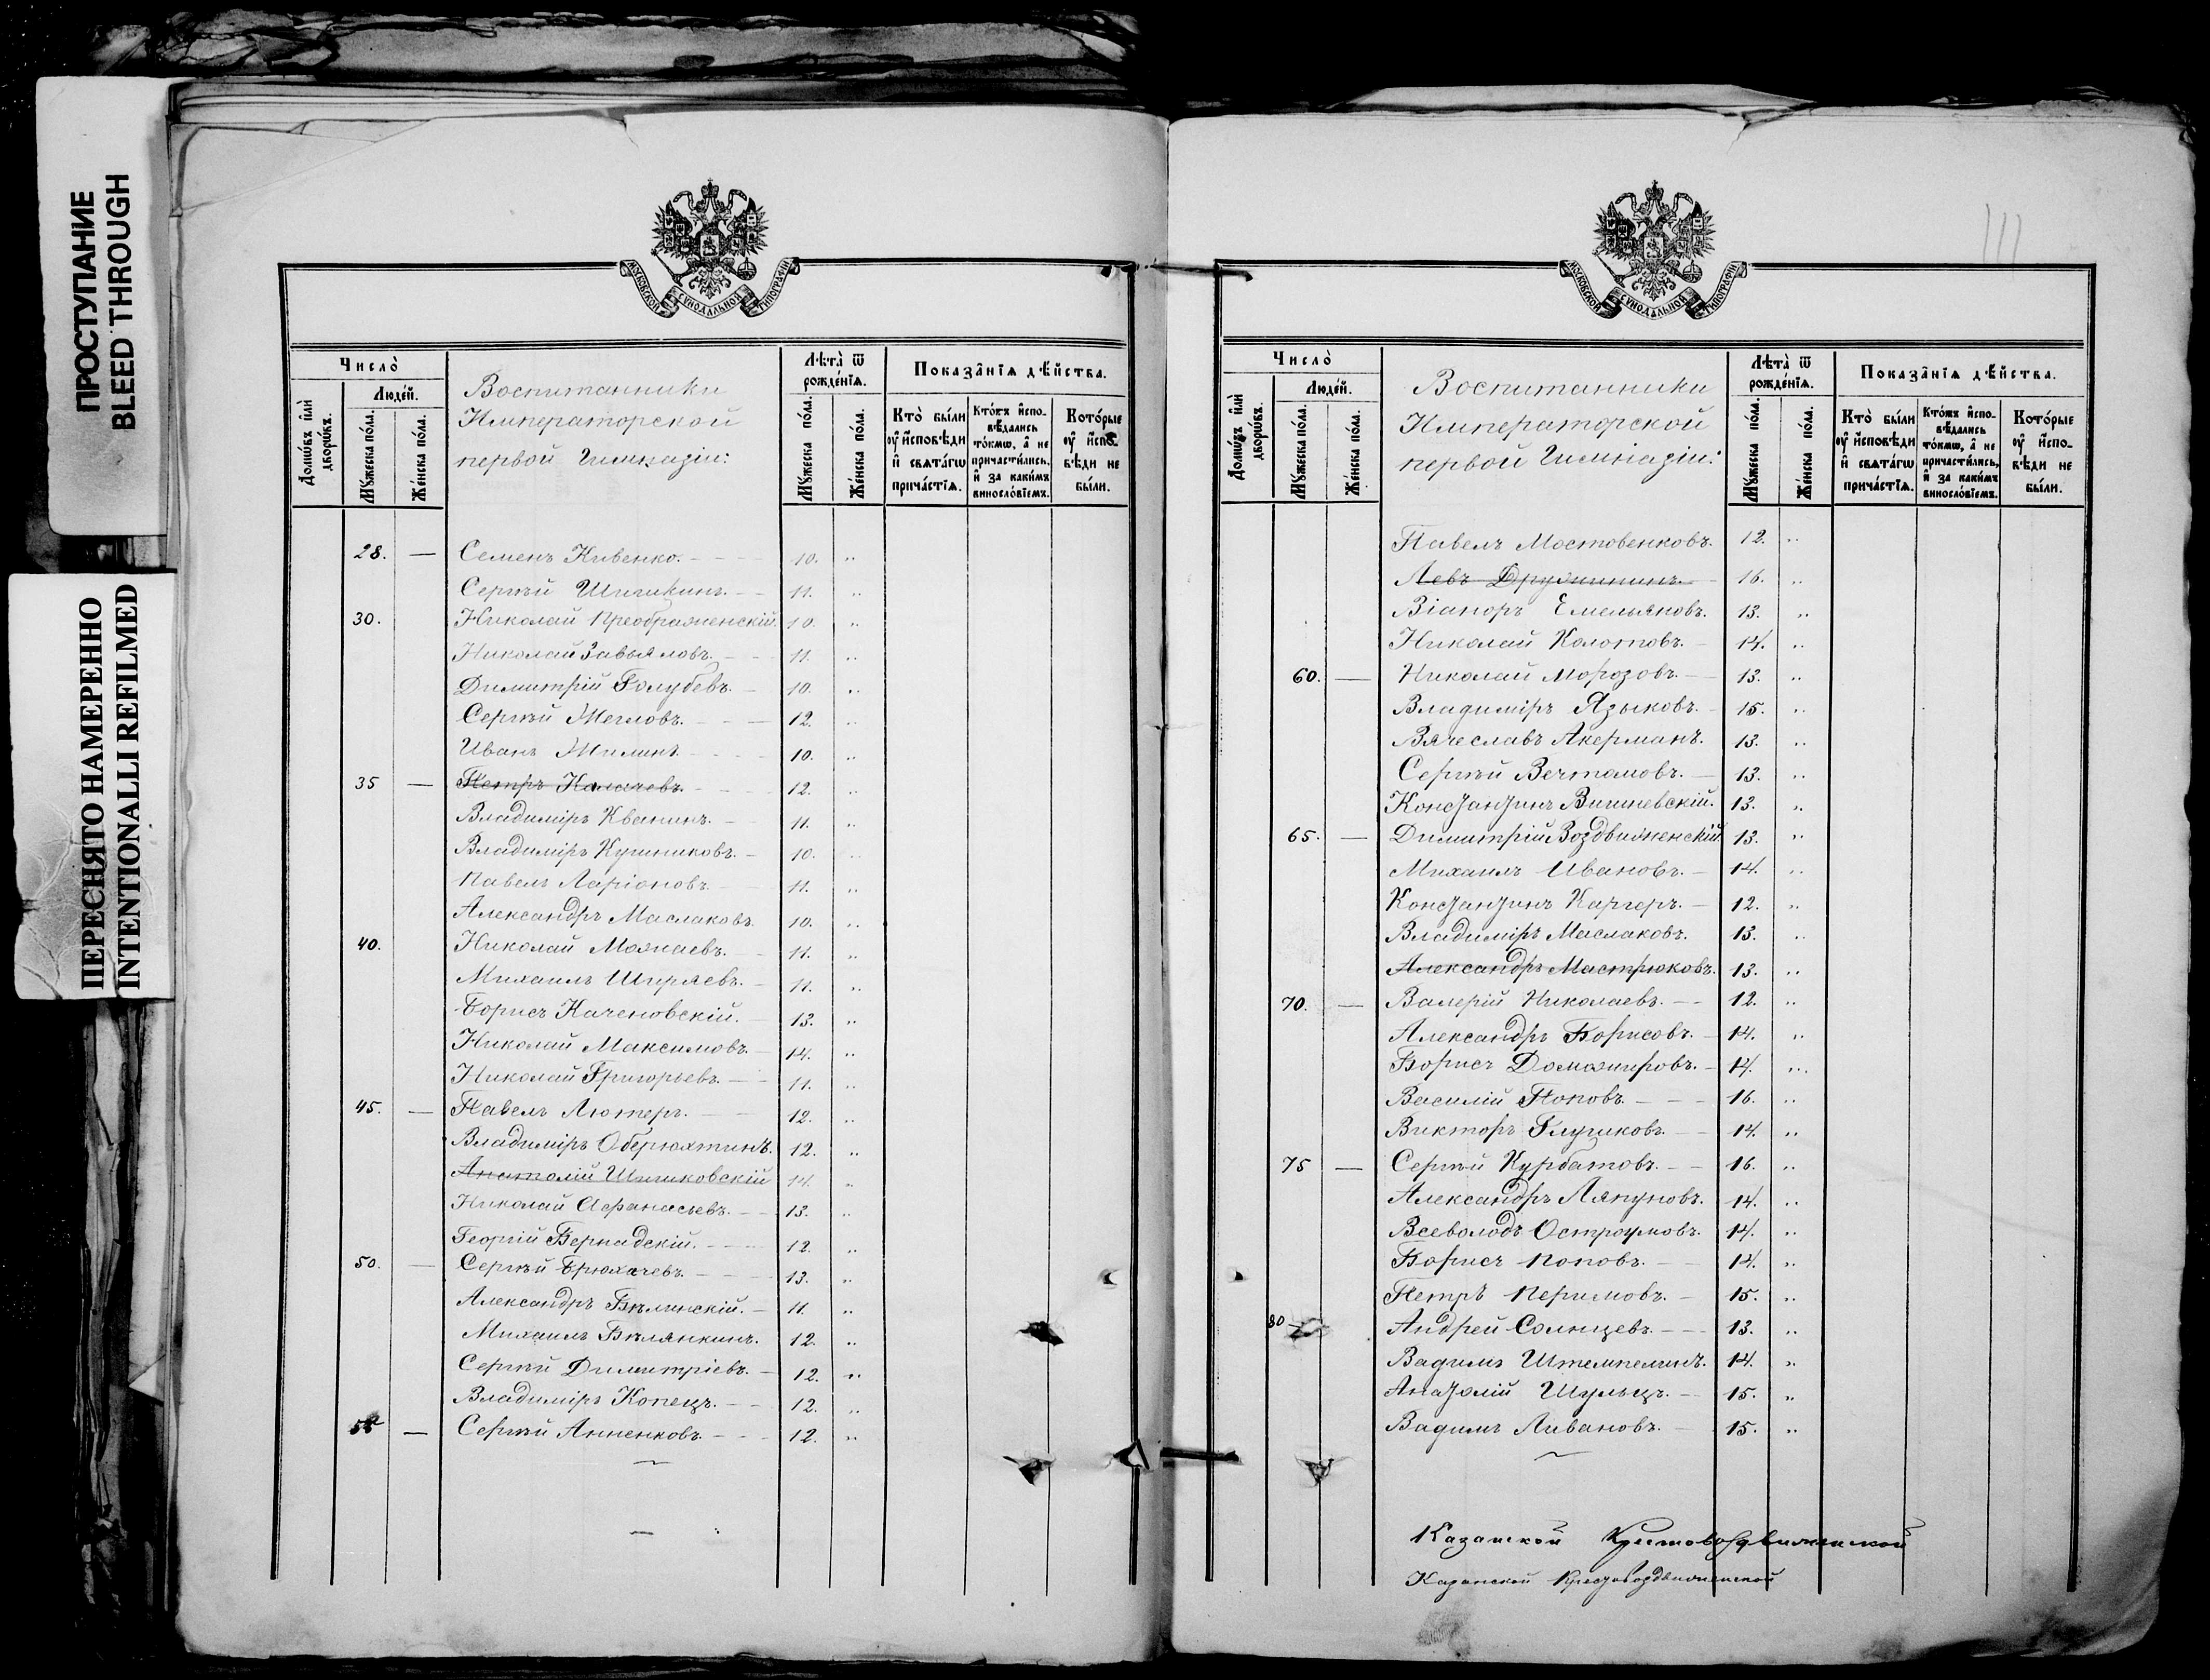 ПРОСТУПАНИЕ
BLEED THROUGH
ПЕРЕСНЯТО НАМЕРЕННО
INTENTIONALLI REFILMED
МОСКОВСКОЙ СУНОДАЛЬНОЙ ТИПОГРАФІИ
Число̀
Людей.
Домѡвъ или дворѡвъ.
Мꙋжеска пола.
Женска пола.
Воспитанники
Императорской
первой Гимназіи:
Лѣта ѿ рожденія.
Мꙋжеска пола.
Женска пола.
Показанія дѣйства.
Кто были ᲂу исповѣди и святагѡ причастія.
Ктожъ исповѣдались токмѡ, а не причастились, и за какимъ винословіемъ.
Которые ᲂу исповѣди не были.
28. — Семенъ Кивенко. 10. „
Сергѣй Шишкинъ. 11. „
30. Николай Преображенскій. 10. „
Николай Завьяловъ. 11. „
Димитрій Голубевъ. 10. „
Сергѣй Жегловъ. 12. „
Иванъ Жилинъ. 10. „
35 — Петръ Калачевъ. 12. „
Владиміръ Кванинъ. 11. „
Владиміръ Кушниковъ. 10. „
Павелъ Ларіоновъ. 11. „
Александръ Маслаковъ. 10. „
40. Николай Можаевъ. 11. „
Михаилъ Ширяевъ. 11. „
Борисъ Каченовскій. 13. „
Николай Максимовъ. 14. „
Николай Григорьевъ. 11. „
45. — Павелъ Лютеръ. 12. „
Владиміръ Оберюхтинъ. 12. „
Анатолій Шишковскій 14. „
Николай Афанасьевъ. 13. „
Георгій Бернадскій. 12. „
50. — Сергѣй Брюхачевъ. 13. „
Александръ Бѣлинскій. 11. „
Михаилъ Бѣлянкинъ. 12. „
Сергѣй Димитріевъ. 12. „
Владиміръ Копецъ. 12. „
55 — Сергѣй Анненковъ. 12. „
111
МОСКОВСКОЙ СУНОДАЛЬНОЙ ТИПОГРАФІИ
Число̀
Людей.
Домѡвъ или дворѡвъ.
Мꙋжеска пола.
Женска пола.
Воспитанники
Императорской
первой Гимназіи:
Лѣта ѿ рожденія.
Мꙋжеска пола.
Женска пола.
Показанія дѣйства.
Кто были ᲂу исповѣди и святагѡ причастія.
Ктожъ исповѣдались токмѡ, а не причастились, и за какимъ винословіемъ.
Которые ᲂу исповѣди не были.
Павелъ Мостовенковъ. 12. „
Левъ Дружининъ. 16. „
Віаноръ Емельяновъ. 13. „
Николай Колотовъ. 14. „
60. — Николай Морозовъ. 13. „
Владиміръ Языковъ. 15. „
Вячеславъ Акерманъ. 13. „
Сергѣй Вечтомовъ. 13. „
Константинъ Вишневскій. 13. „
65. — Димитрій Воздвиженскій. 13. „
Михаилъ Ивановъ. 14. „
Константинъ Каргеръ. 12. „
Владиміръ Маслаковъ. 13. „
Александръ Мастрюковъ. 13. „
70. — Валерій Николаевъ. 12. „
Александръ Борисовъ. 14. „
Борисъ Доможировъ. 14. „
Василій Поповъ. 16. „
Викторъ Глушковъ. 14. „
75 — Сергѣй Курбатовъ. 16. „
Александръ Ляпуновъ. 14. „
Всеволодъ Остроумовъ. 14. „
Борисъ Поповъ. 14. „
Петръ Перимовъ. 15. „
80 — Андрей Солнцевъ. 13. „
Вадимъ Штемпелинъ. 14. „
Анатолій Шульцъ. 15. „
Вадимъ Ливановъ. 15. „
Казанской Крестовоздвиженской
Казанской Крестовоздвиженской